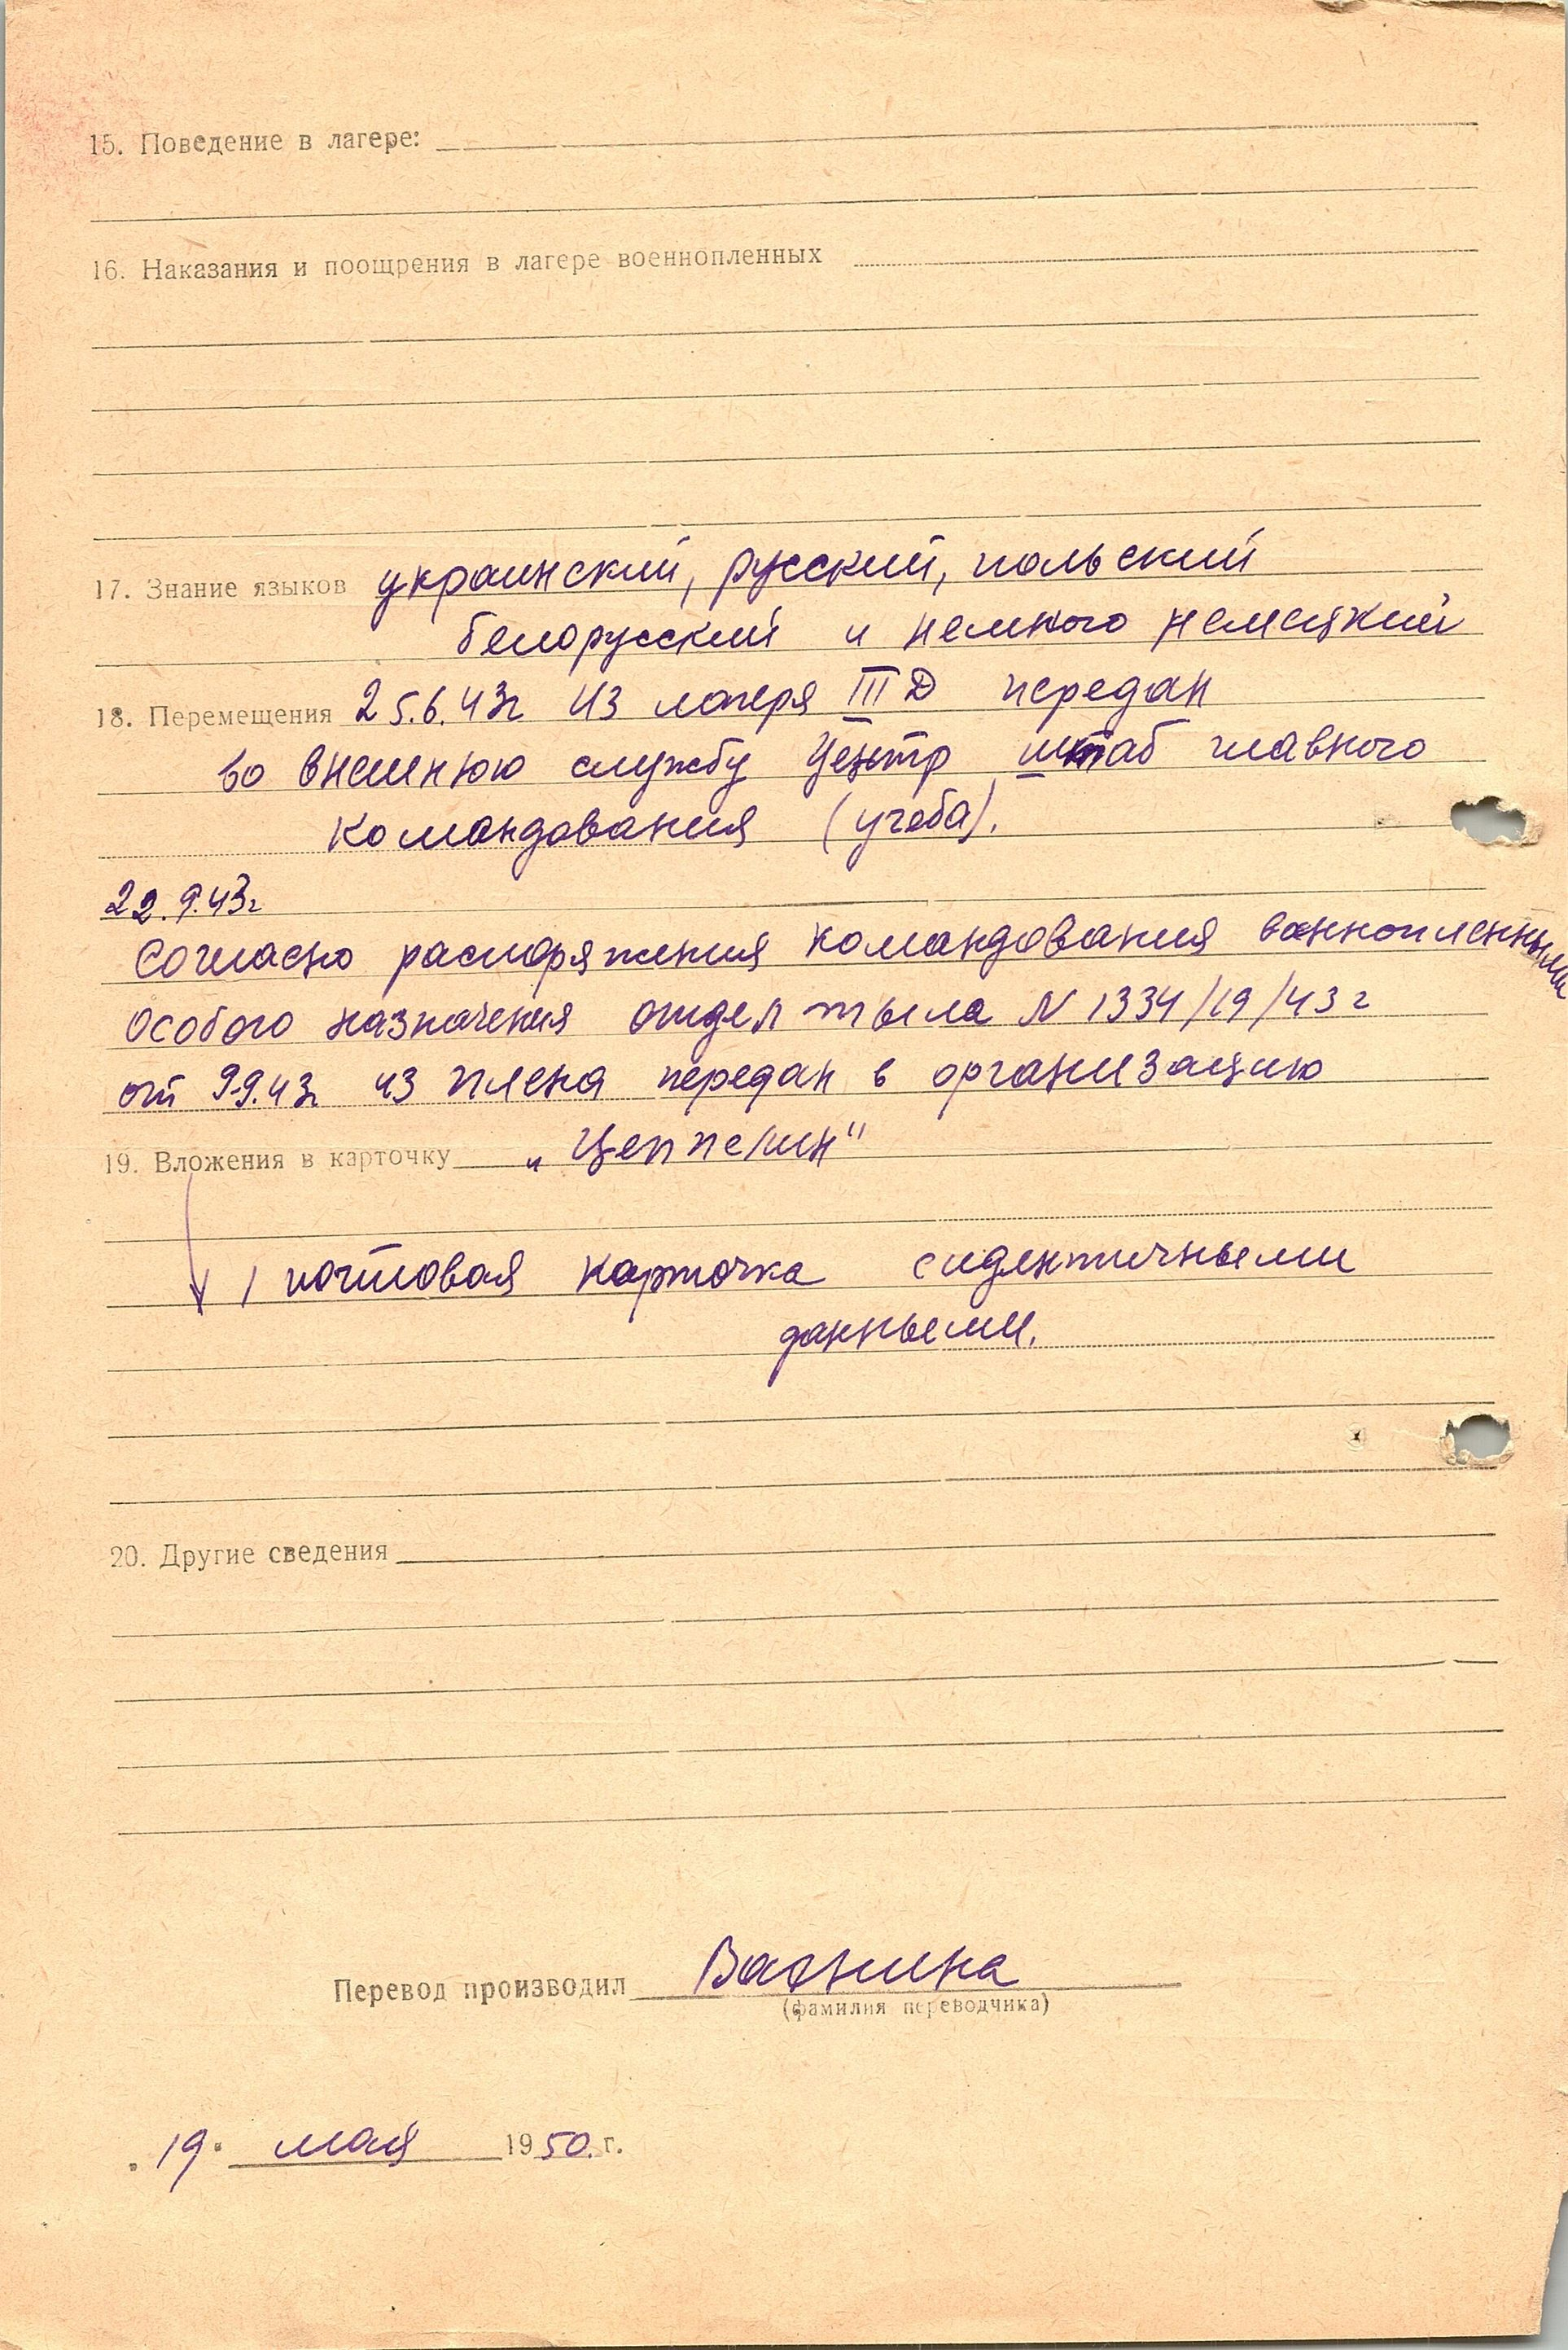 15. Поведение в лагере:
16. Наказания и поощрения в лагере военнопленных
17. Знание языков украинский, русский, польский
белорусский и немного немецкий
18. Перемещения 25.6.43г из лагеря III Д передан
во внешнюю службу Центр штаб главного
командования (учеба).
22.9.43г
Согласно распоряжения командования военнопленными
особого назначения отдел тыла N 1334/19/43г
от 9.9.43г из плена передан в организацию
19. Вложения в карточку „Цеппелин"
1 почтовая карточка с идентичными
данными.
20. Другие сведения
Перевод производил
(фамилия переводчика)
„19" мая 1950 г.